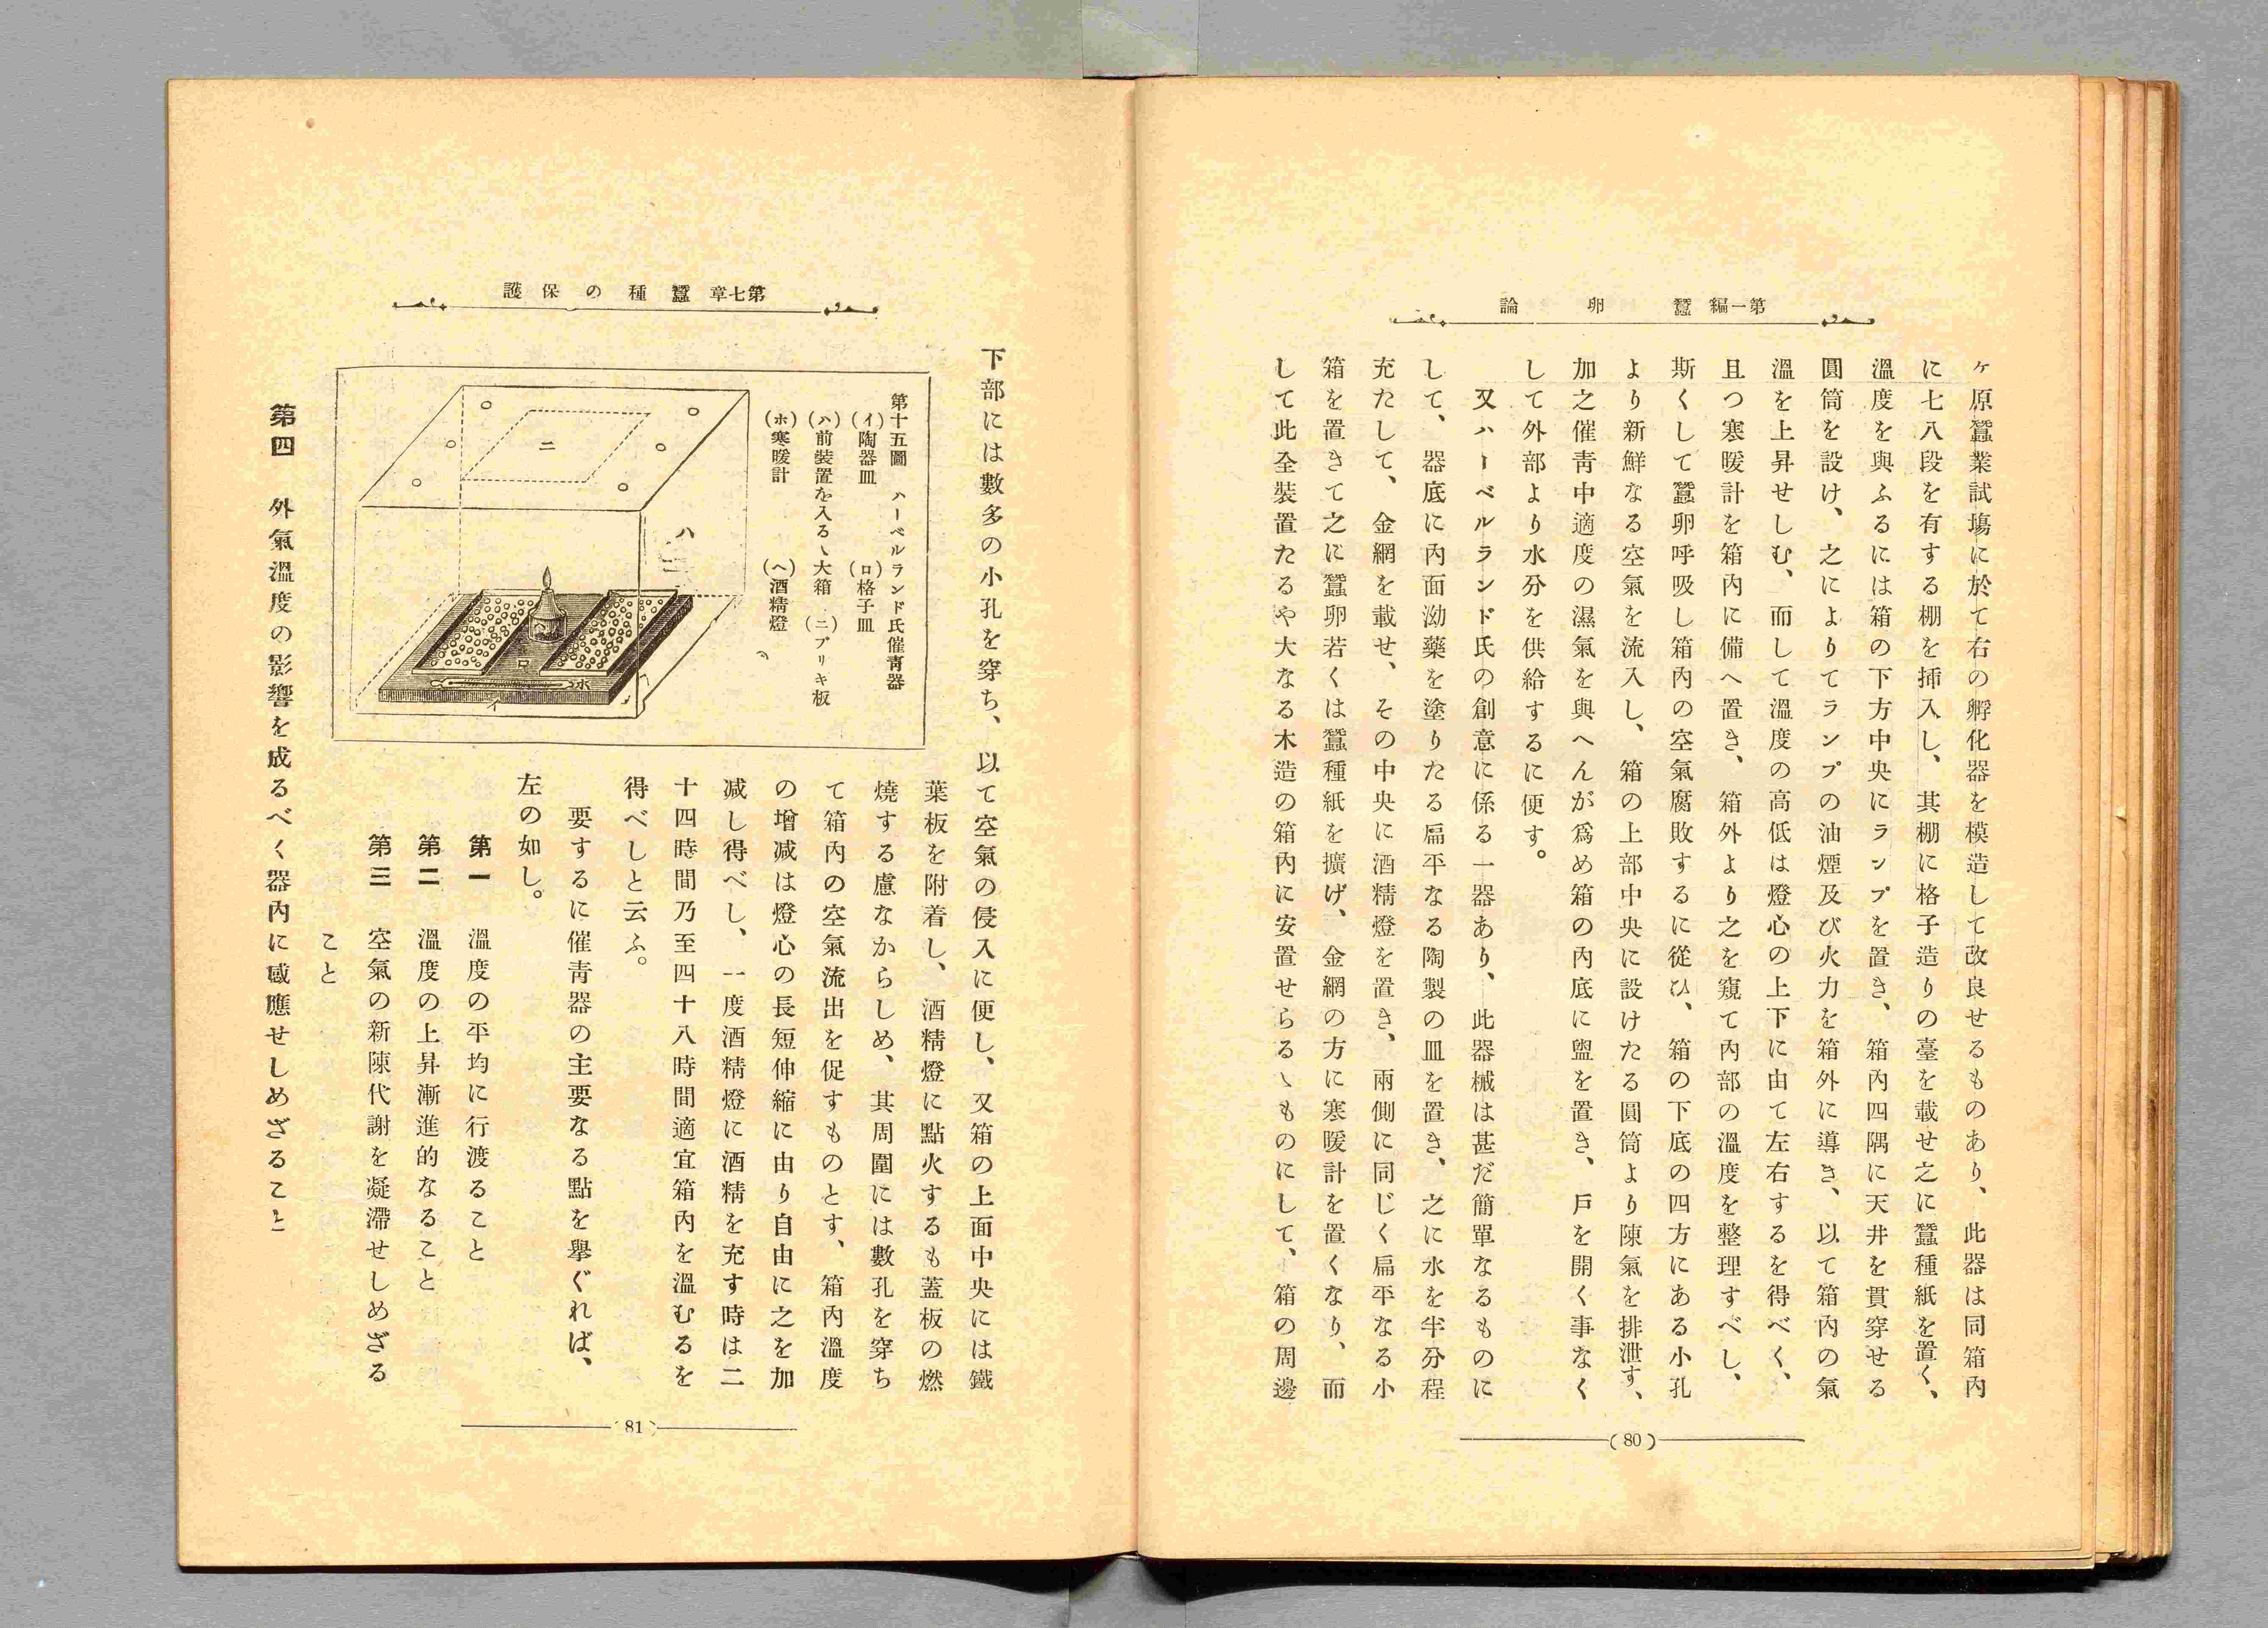 第一編　蠶卵論
ヶ原蠶業試塲に於て右の孵化器を模造して改良せるものあり、此器は同箱內
に七八段を有する棚を揷入し、其棚に格子造りの臺を載せ之に蠶種紙を置く、
溫度を與ふるには箱の下方中央にランプを置き、箱內四隅に天井を貫穿せる
圓筒を設け、之によりてランプの油煙及び火力を箱外に導き、以て箱內の氣
溫を上昇せしむ、而して溫度の高低は燈心の上下に由て左右するを得べく、
且つ寒暖計を箱內に備へ置き、箱外より之を窺て內部の溫度を整理すべし、
斯くして蠶卵呼吸し箱內の空氣腐敗するに從ひ、箱の下底の四方にある小孔
より新鮮なる空氣を流入し、箱の上部中央に設けたる圓筒より陳氣を排泄す、
加之催靑中適度の濕氣を與へんが爲め箱の內底に盥を置き、戶を開く事なく
して外部より水分を供給するに便す。
又ハーベルランド氏の創意に係る一器あり、此器械は甚だ簡單なるものに
して、器底に內面泑藥を塗りたる扁平なる陶製の皿を置き、之に水を半分程
充たして、金網を載せ、その中央に酒精燈を置き、兩側に同じく扁平なる小
箱を置きて之に蠶卵若くは蠶種紙を擴げ、金網の方に寒暖計を置くなり、而
して此全裝置たるや大なる木造の箱內に安置せらるゝものにして、箱の周邊
(80)
第七章　蠶種の保護
下部には數多の小孔を穿ち、以て空氣の侵入に便し、又箱の上面中央には鐵
第十五圖　ハーベルランド氏催靑器
(イ)陶器皿　(ロ)格子皿
(ハ)前裝置を入るゝ大箱　(ニ)ブリキ板
(ホ)寒暖計　(ヘ)酒精燈
ニ
ハ
ロ
ホ
イ
葉板を附着し、酒精燈に點火するも蓋板の燃
燒する慮なからしめ、其周圍には數孔を穿ち
て箱內の空氣流出を促すものとす、箱內溫度
の增減は燈心の長短伸縮に由り自由に之を加
減し得べし、一度酒精燈に酒精を充す時は二
十四時間乃至四十八時間適宜箱內を溫むるを
得べしと云ふ。
要するに催靑器の主要なる點を擧ぐれば、
左の如し。
第一　溫度の平均に行渡ること
第二　溫度の上昇漸進的なること
第三　空氣の新陳代謝を凝滯せしめざる
こと
第四　外氣溫度の影響を成るべく器內に感應せしめざること
(81)